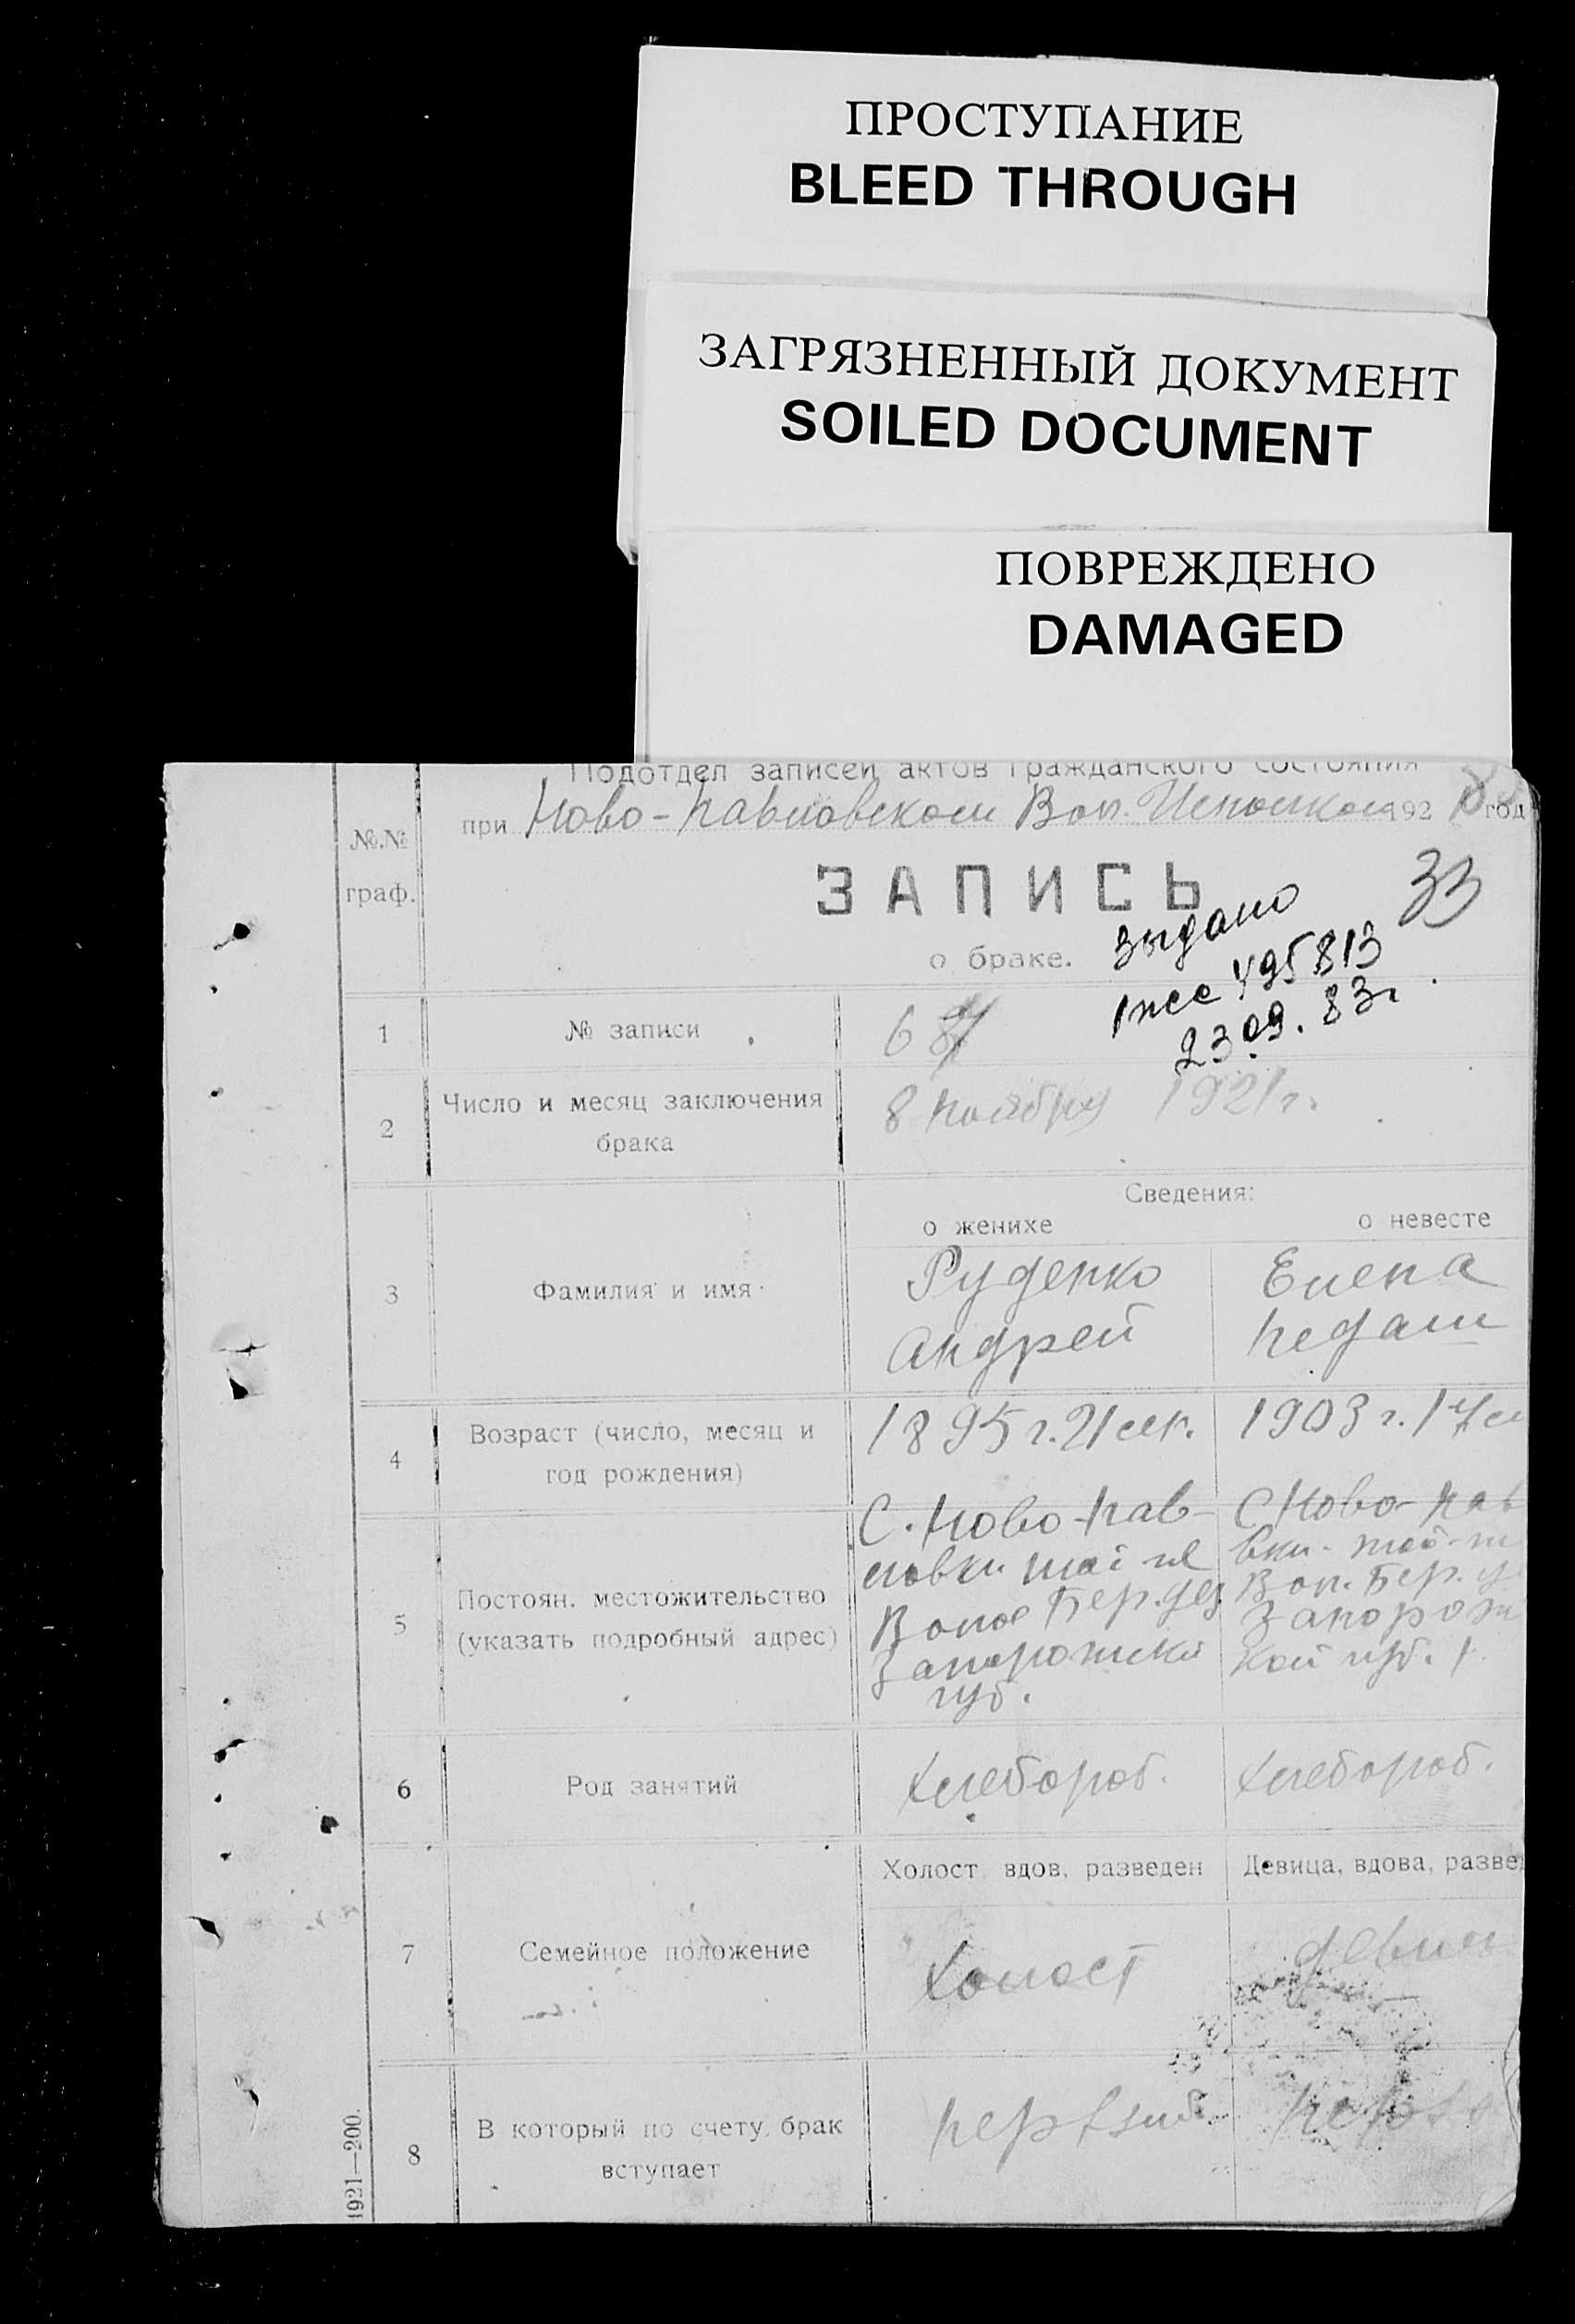 ПРОСТУПАНИЕ
BLEED THROUGH
ЗАГРЯЗНЕННЫЙ ДОКУМЕНТ
SOILED DOCUMENT
ПОВРЕЖДЕНО
DAMAGED
Подотдел записей актов гражданского состояния
при Ново-Павловском Вол. Исполкоме 192 год
№.№
граф.
ЗАПИСЬ
33
о браке.
выдано
495813
23 09. 83г.
1
№ записи
6
2
Число и месяц заключения
брака
8 ноября 1921 г.
Сведения:
о женихе
о невесте
3
Фамилия и имя
Руденко
Андрей
Елена
Недаш
4
Возраст (число, месяц и
год рождения)
1895 г. 21
1903 г. 1
5
Постоян. местожительство
(указать подробный адрес)
С. Ново-Пав-
ловки той-же
Волос Бер.
Запорожска
губ.
С Ново-Пав
вки. той-ж
Вол. Бер. у
Запорож
кой губ.
6
Род занятий
Хлебороб.
Хлебороб.
7
Семейное положение
Холост, вдов, разведен
Девица, вдова, разве
Холост
девиц
8
В который по счету брак
вступает
первый
перв
1921—200.